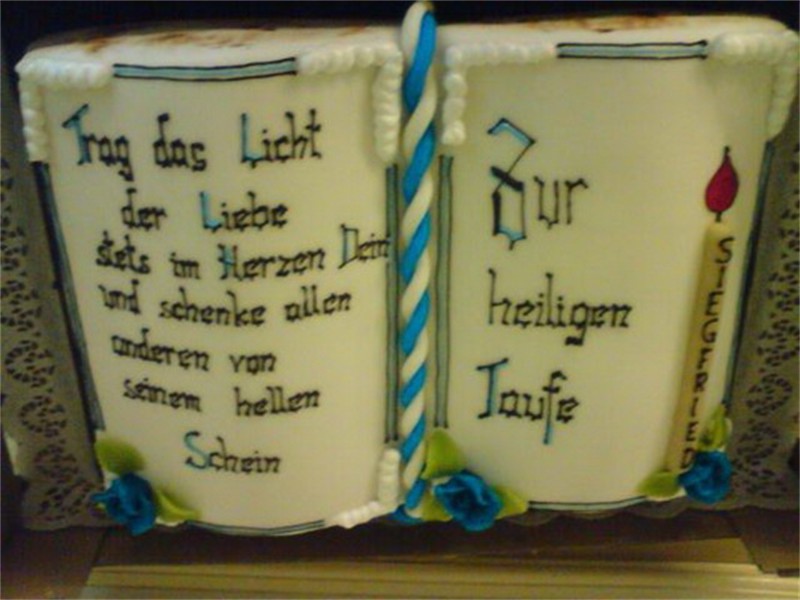 Trag das Licht
der Liebe
stets im Herzen Dein
und schenke allen
anderen von
seinem hellen
Schein
Zur
heiligen
Taufe
SIEGFRIED